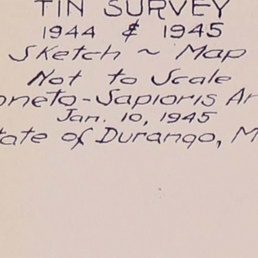 TIN SURVEY
1944 & 1945
Sketch ~ Map
Not to Scale
oneto-Sapioris Ar
Jan. 10, 1945
tate of Durango, M